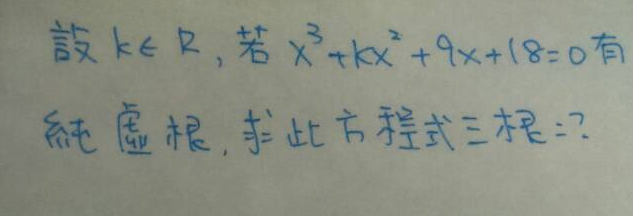 設 k∈R, 若 x³+kx²+9x+18=0 有
純虛根, 求此方程式三根=?